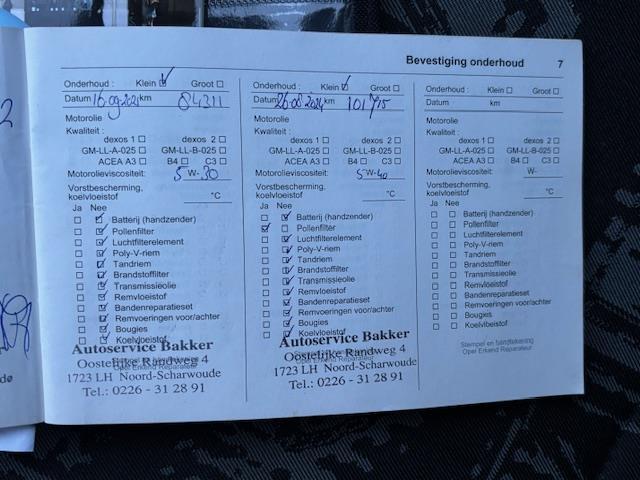 Bevestiging onderhoud 7
Onderhoud : Klein Groot
Datum 16-09-2021 km 84311
Motorolie
Kwaliteit :
dexos 1 dexos 2
GM-LL-A-025 GM-LL-B-025
ACEA A3 B4 C3
Motorolieviscositeit: 5 W- 30
Vorstbescherming,
koelvloeistof °C
Ja Nee
Batterij (handzender)
Pollenfilter
Luchtfilterelement
Poly-V-riem
Tandriem
Brandstoffilter
Transmissieolie
Remvloeistof
Bandenreparatieset
Remvoeringen voor/achter
Bougies
Koelvloeistof
Autoservice Bakker
Oostelijke Randweg 4
Opel Erkend Reparateur
1723 LH Noord-Scharwoude
Tel.: 0226 - 31 28 91
Onderhoud : Klein Groot
Datum 26-08-2024 km
Motorolie
Kwaliteit :
dexos 1 dexos 2
GM-LL-A-025 GM-LL-B-025
ACEA A3 B4 C3
Motorolieviscositeit: 5 W- 40
Vorstbescherming,
koelvloeistof °C
Ja Nee
Batterij (handzender)
Pollenfilter
Luchtfilterelement
Poly-V-riem
Tandriem
Brandstoffilter
Transmissieolie
Remvloeistof
Bandenreparatieset
Remvoeringen voor/achter
Bougies
Koelvloeistof
Autoservice Bakker
Oostelijke Randweg 4
Opel Erkend Reparateur
1723 LH Noord-Scharwoude
Tel.: 0226 - 31 28 91
Onderhoud : Klein Groot
Datum km
Motorolie
Kwaliteit :
dexos 1 dexos 2
GM-LL-A-025 GM-LL-B-025
ACEA A3 B4 C3
Motorolieviscositeit: W-
Vorstbescherming,
koelvloeistof °C
Ja Nee
Batterij (handzender)
Pollenfilter
Luchtfilterelement
Poly-V-riem
Tandriem
Brandstoffilter
Transmissieolie
Remvloeistof
Bandenreparatieset
Remvoeringen voor/achter
Bougies
Koelvloeistof
Stempel en handtekening
Opel Erkend Reparateur